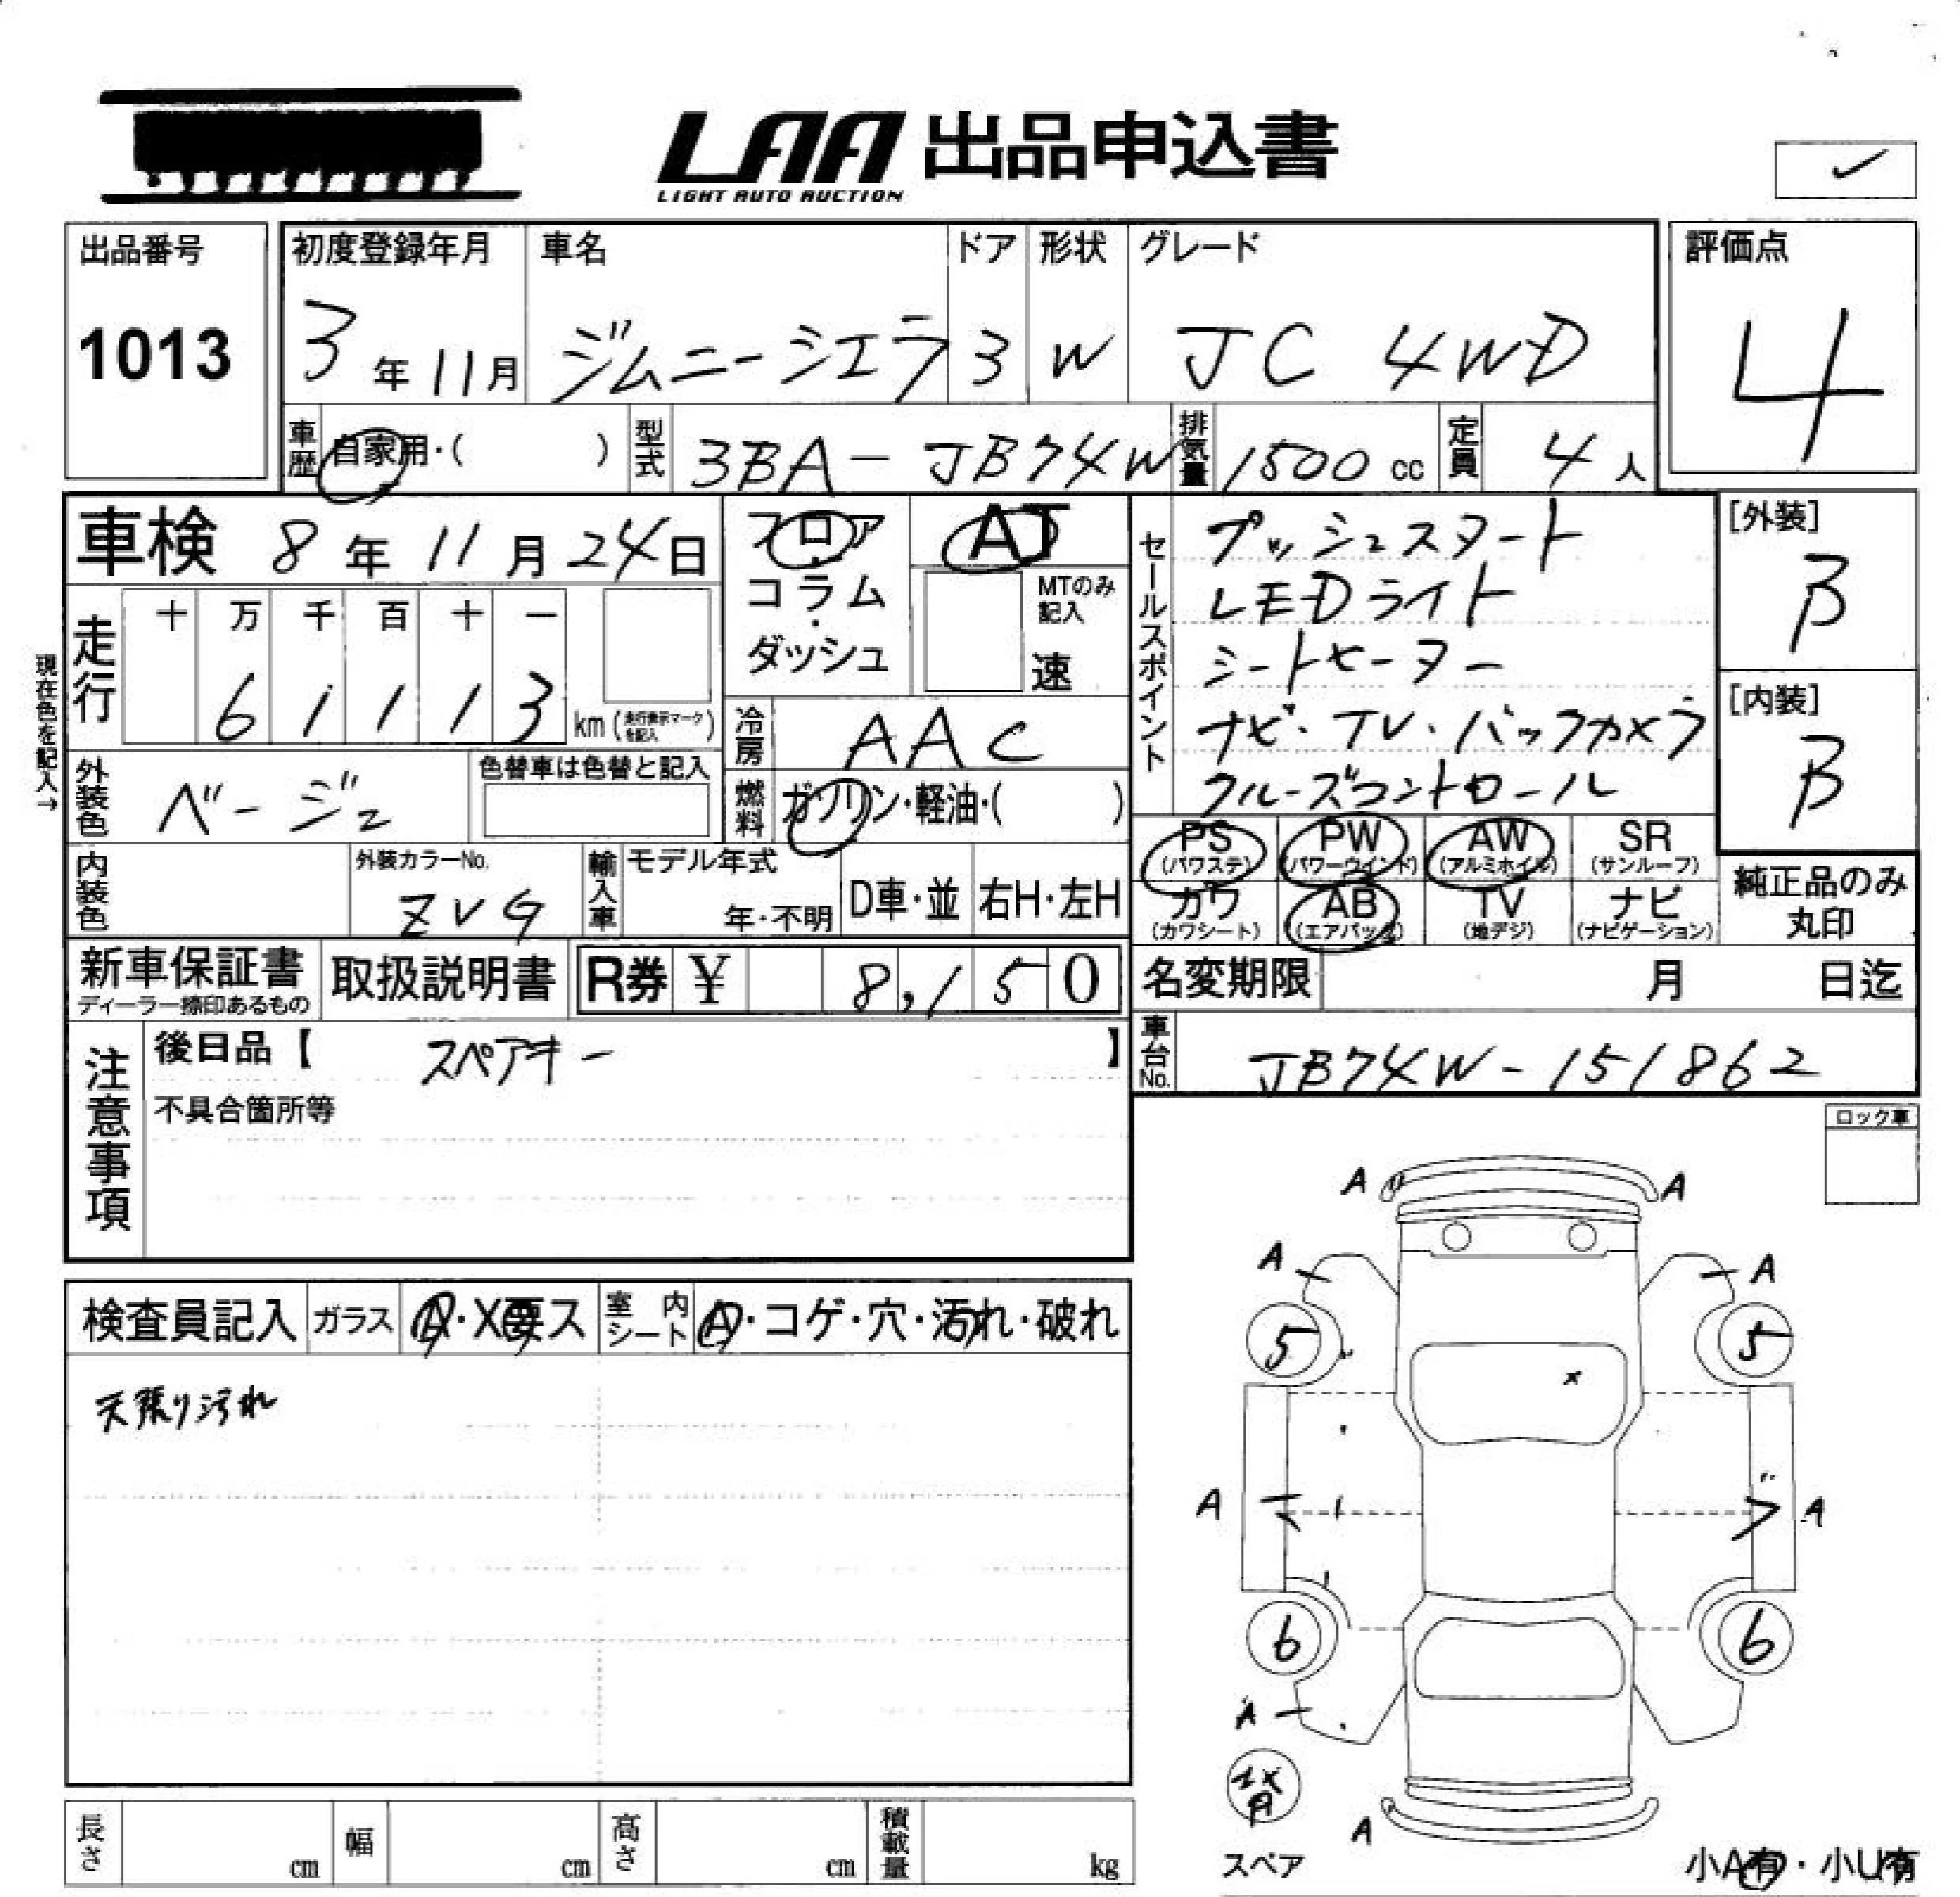 LAA 出品申込書
LIGHT AUTO AUCTION
✓
出品番号
1013
初度登録年月 車名 ドア 形状 グレード
3年11月 ジムニーシエラ 3 W JC 4WD
評価点
4
車歴 自家用・( ) 型式 3BA-JB74W 排気量 1500cc 定員 4人
車検 8年11月24日
フロア・コラム・ダッシュ
AT
MTのみ記入
速
セールスポイント
プッシュスタート
LEDライト
シートヒーター
ナビ・TV・バックカメラ
クルーズコントロール
[外装]
B
[内装]
B
現在色を記入→
走行 十 万 千 百 十 一
61113 km (走行表示マークを記入)
冷房 AAC
外装色 ベージュ 色替車は色替と記入
燃料 ガソリン・軽油・( )
PS (パワステ) PW (パワーウインド) AW (アルミホイル) SR (サンルーフ)
カワ (カワシート) AB (エアバック) TV (地デジ) ナビ (ナビゲーション)
純正品のみ
丸印
内装色 外装カラーNo. ZVG 輸入車 モデル年式 年・不明 D車・並 右H・左H
新車保証書 ディーラー捺印あるもの 取扱説明書 R券 ¥ 8,150
名変期限 月 日迄
車台No. JB74W-151862
注意事項
後日品【 スペアキー 】
不具合箇所等
ロック車
検査員記入 ガラス A・X要ス 室内シート A・コゲ・穴・汚れ・破れ
天張り汚れ
A A
A A
5 5
x
A A
6 6
A
背
A
スペア
小A有・小U有
長さ cm 幅 cm 高さ cm 積載量 kg